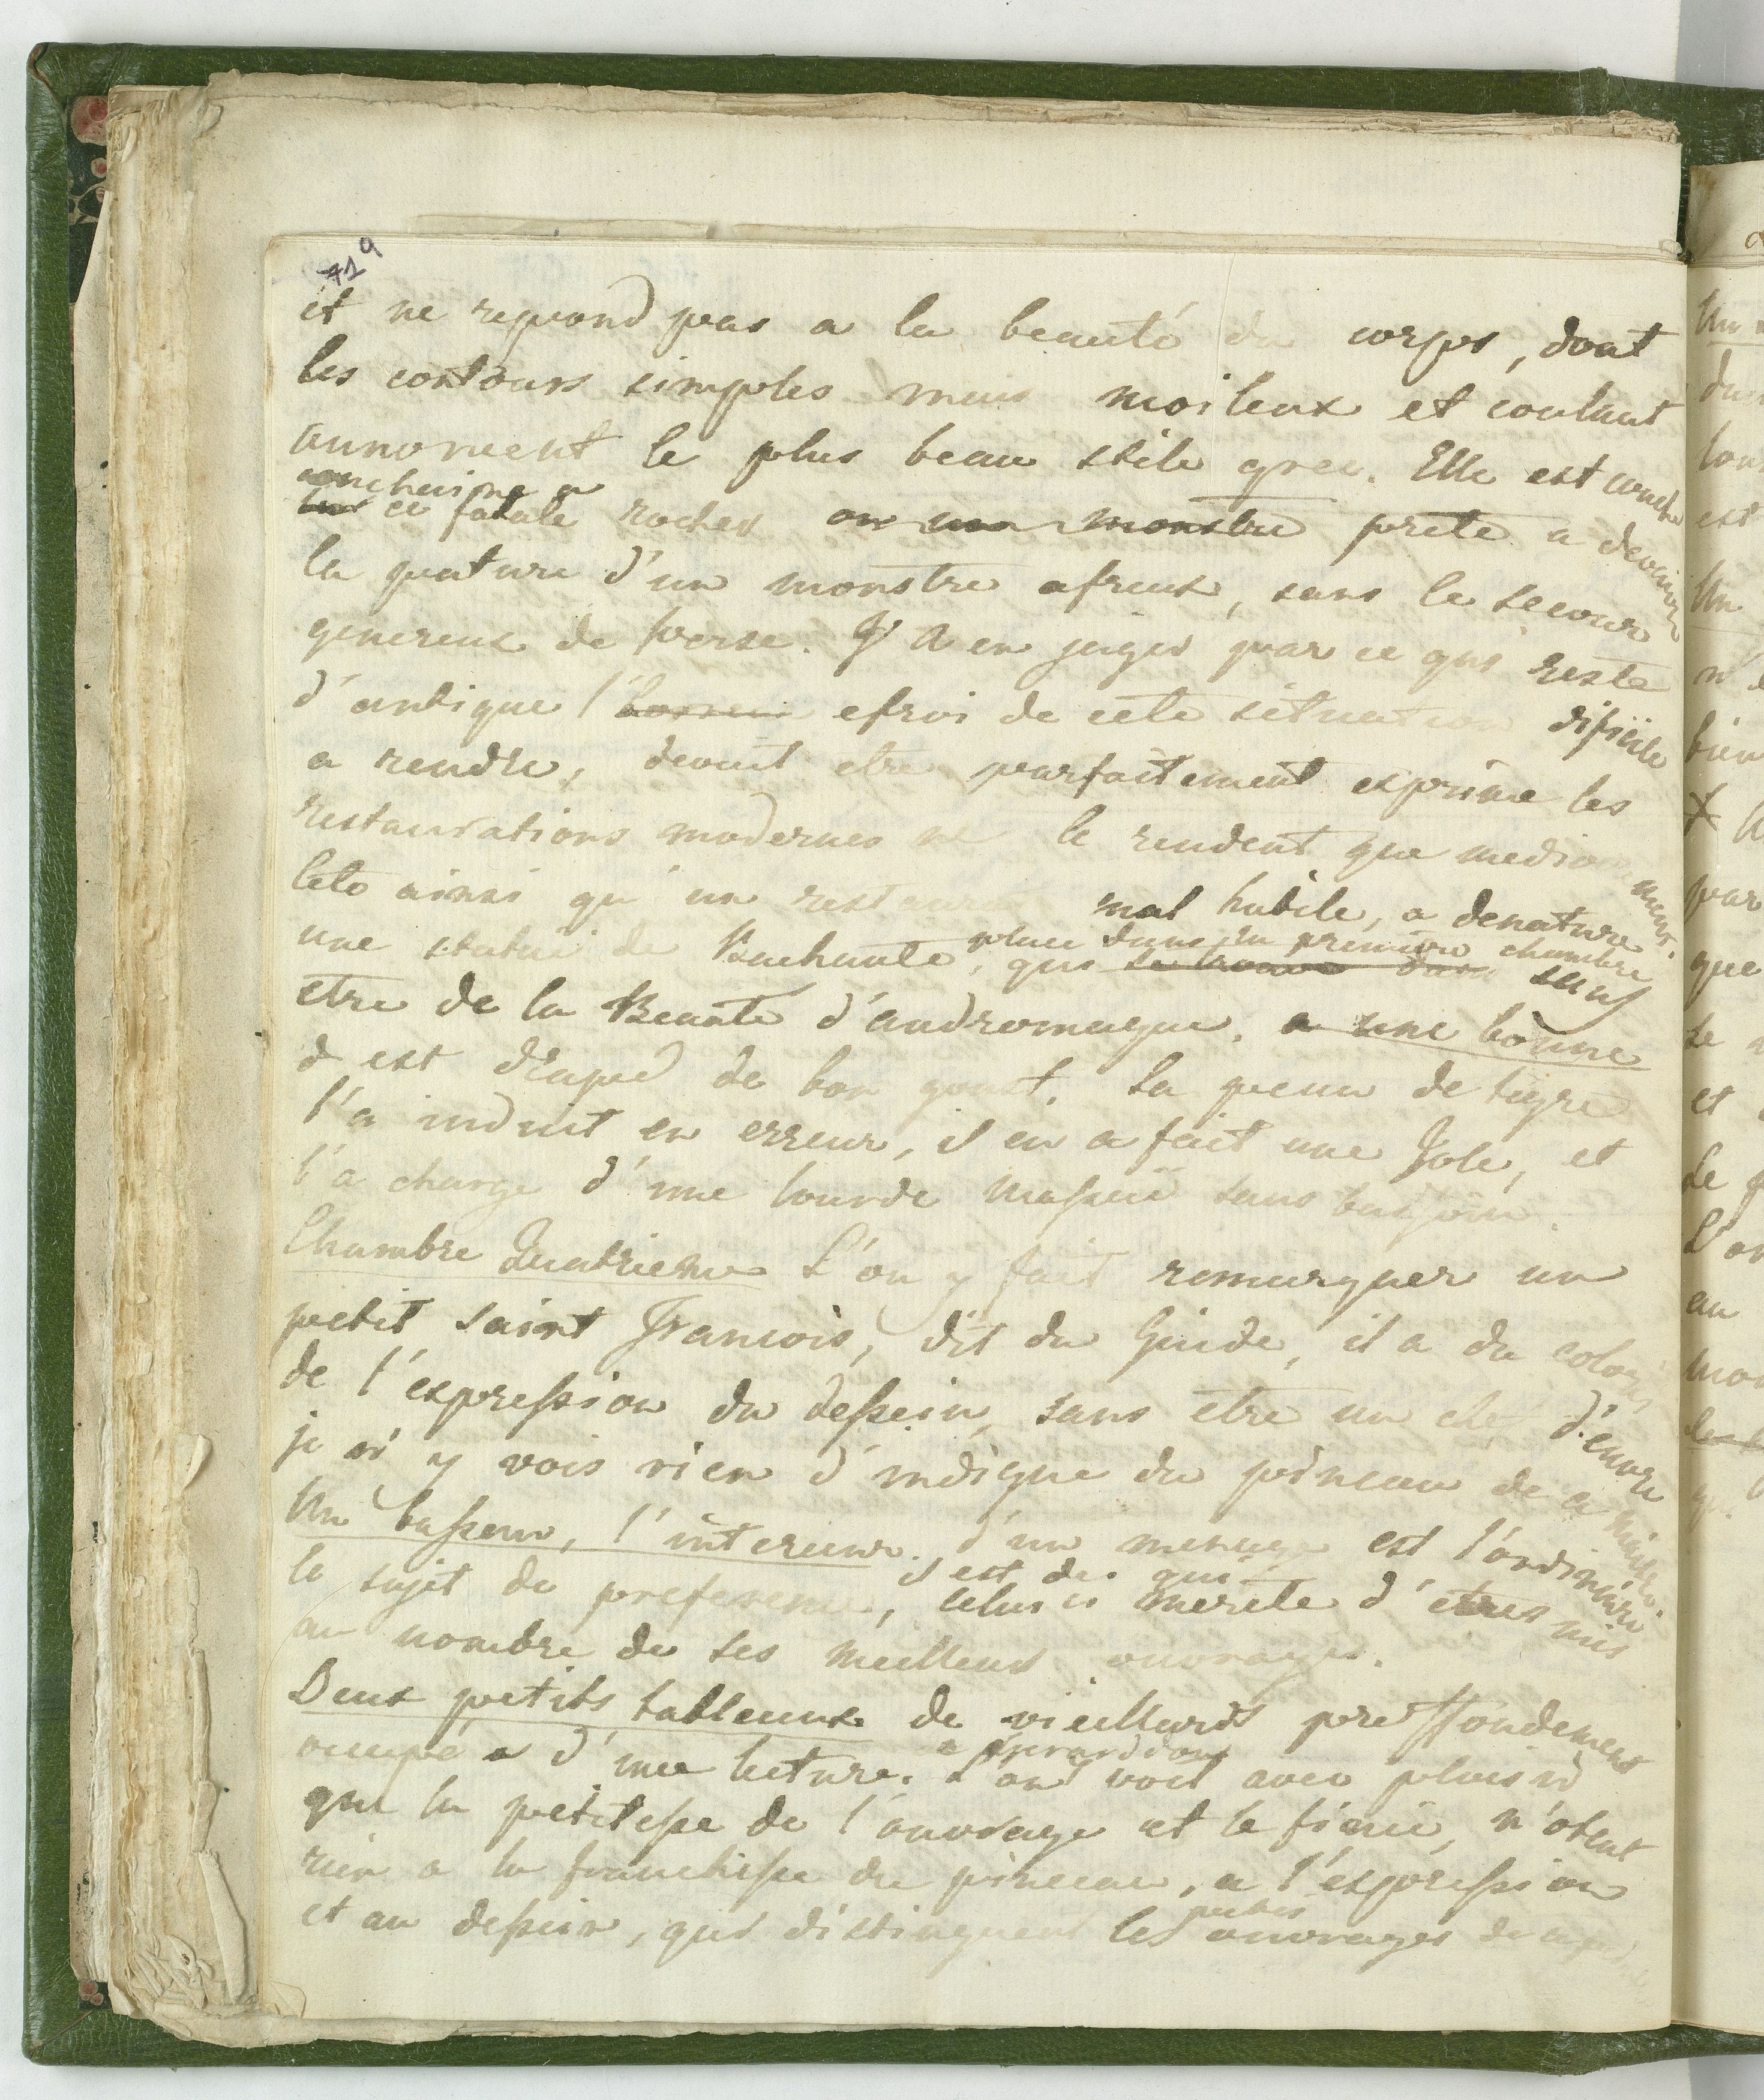 71 a
et ne repond pas a la beauté du corps, dont
les contours simples mais moileux et coulant
annoncent le plus beau stile grec. Elle est
ce fatale rocher ou un monstre prete a devenir
la pature d'un monstre afreux, sans le secour
genereux de Perse. A en juger par ce qui reste
d'antique l'horreur efroi de cete situation dificile
a rendre, devait etre parfaitement exprime les
restaurations modernes ne le rendent que mediocrement.
ainsi qu'un restaurateur mal habile, a denature
place dans la premiere chambre
une statue de Bachante, qui se trouve dans sans
etre de la Beauté d'andromaque, a une bonne
est drapé de bon goust. La peau de tigre
l'a induit en erreur, il en a fait une Jole, et
l'a charge d'une lourde massue sans besoin.
Chambre Quatrieme L'on y fait remarquer un
petit saint Francois, dit du Guide, il a du coloris
de l'expression du dessein, sans etre un chef d'euvre
je n'y vois rien d'indigne du pinceau de ce maitre.
Un bassano, l'interieur d'un menage est l'ordinaire
le sujet de preference, celui ci merite d'etres mis
au nombre de ses meilleurs ouvrages.
Deux petits tableaux de vieillards proffondement
occupé a d'une lecture. L'on voit avec plaisir
que la petitesse de l'ouvrage et le finie, n'otent
rien a la franchisse du pinceau, a l'expression
petits
et au dessein, qui distinguent les ouvrages de